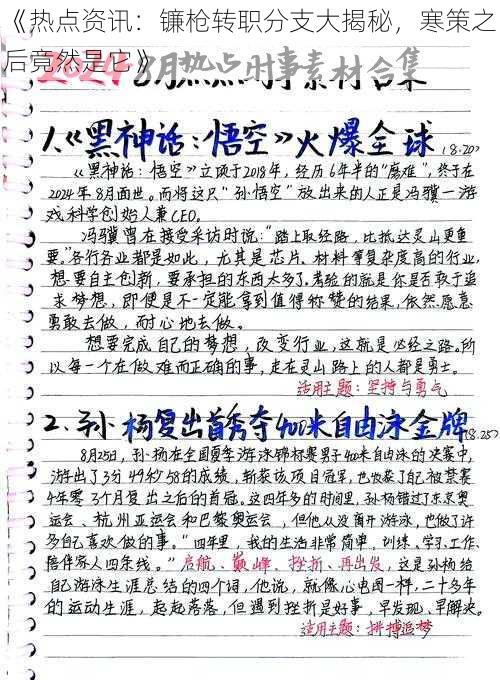 《热点资讯：镰枪转职分支大揭秘，寒策之
后竟然是它》
2024 8月热点时事素材合集
1.《黑神话:悟空》火爆全球(8.20)
《黑神话：悟空》立项于2018年，经历6年半的“磨难”，终于在
2024年8月面世。而将这只“孙悟空”放出来的人正是冯骥—游
戏科学创始人兼CEO。
冯骥曾在接受采访时说：“踏上取经路，比抵达灵山更重
要。”各行各业都是如此，尤其是芯片、材料等复杂度高的行业，
想要自主创新，要承担的东西太多了。考验的就是你是否敢于追
求梦想，即使是不一定能拿到值得称赞的结果，依然愿意
勇敢去做，耐心地去做。
想要完成自己的梦想，改变行业，这就是必经之路。所
以每一个在做难而正确的事，走在灵山路上的人都是勇士。
适用主题：坚持与勇气
2.孙杨复出首秀夺400米自由泳金牌(8.25)
8月25日，孙杨在全国夏季游泳锦标赛男子400米自由泳的决赛中，
游出了3分49秒58的成绩，斩获该项目冠军，也收获了自己被禁赛
4年零3个月复出之后的首冠。这四年多的时间里，孙杨错过了东京奥
运会、杭州亚运会和巴黎奥运会，但他从没离开游泳，也做了许
多自己喜欢做的事。“四年里，我的生活非常简单，训练、学习、工作、
陪伴家人四条线。”启航、巅峰、挫折、再出发，这是孙杨给
自己游泳生涯总结的四个词，他说，就像心电图一样，二十多年
的运动生涯，起起落落，但遇到挫折是好事，早发现、早解决。
适用主题：拼搏追梦